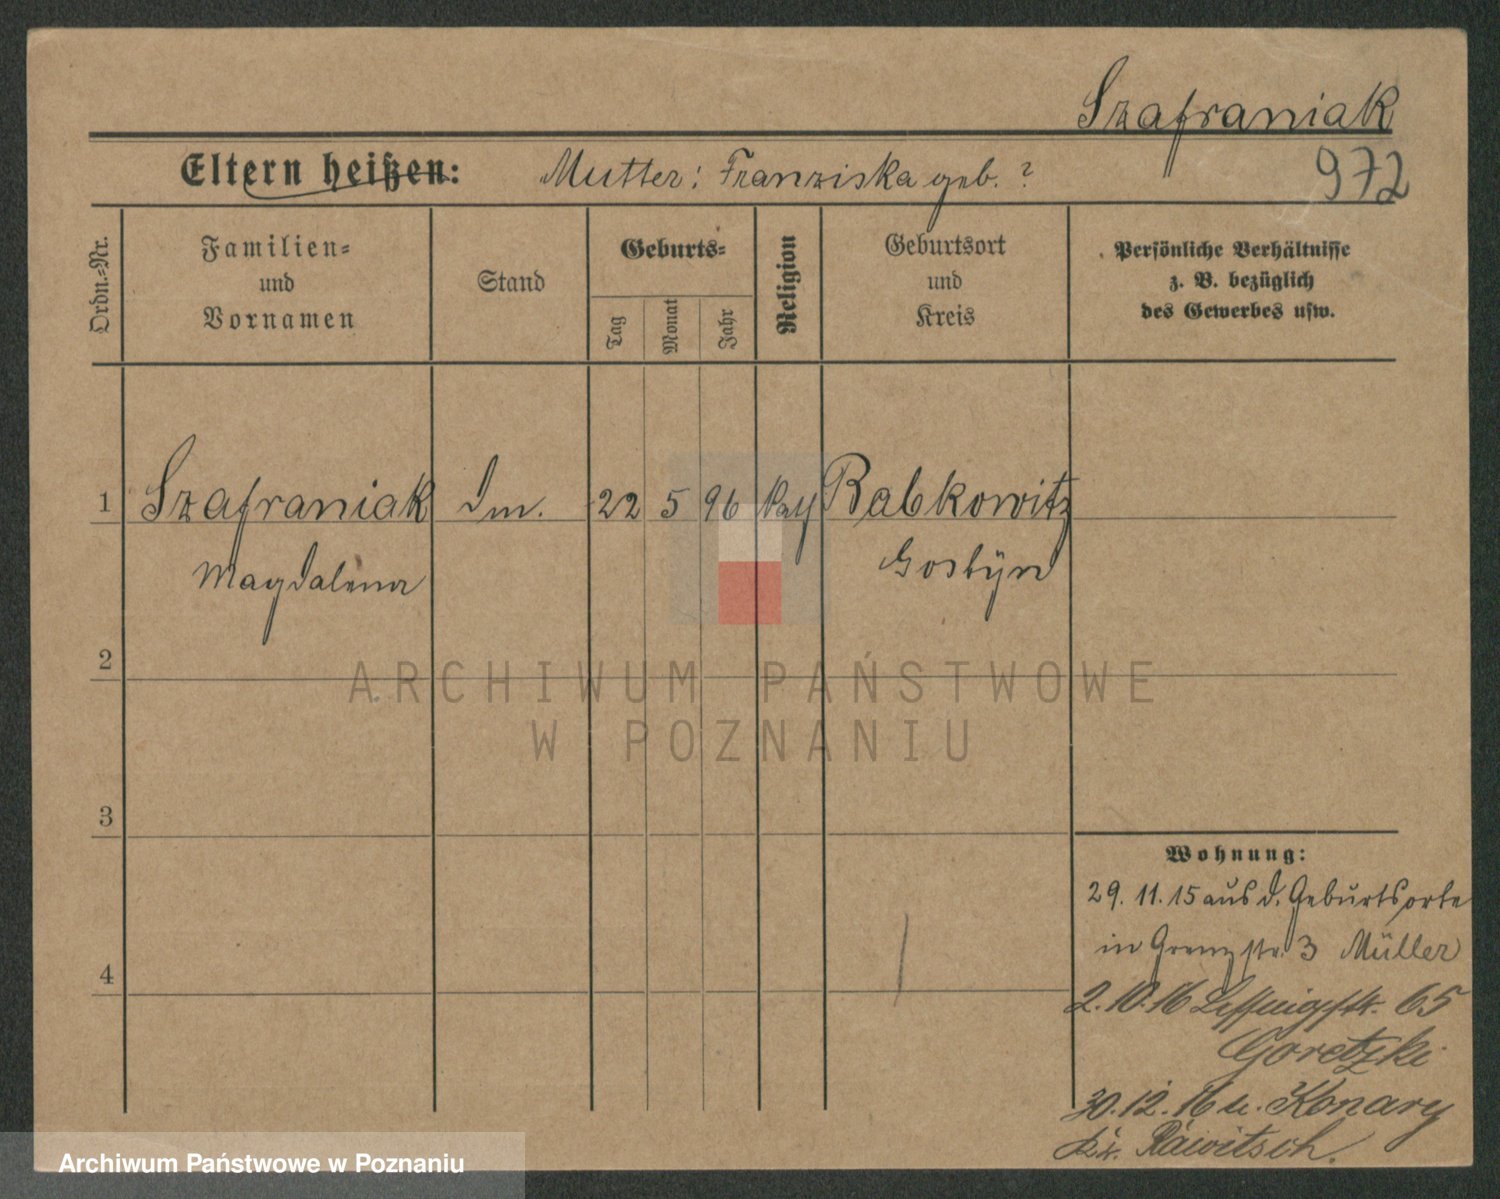 Szafraniak
Eltern heißen: Mutter: Franziska geb. ?
972
Ordn.=Nr.
Familien=
und
Vornamen
Stand
Geburts=
Tag
Monat
Jahr
Religion
Geburtsort
und
Kreis
Persönliche Verhältnisse
z. B. bezüglich
des Gewerbes usw.
1 Szafraniak Dm. 22 5 96 kath Babkowitz
Magdalena Gostÿn
2
ARCHIWUM PAŃSTWOWE
W POZNANIU
3
Wohnung:
29. 11. 15 aus d. Geburtsorte
in Grenzstr. 3 Müller
4
2. 10. 16 Lessingstr. 65
Goretzki
30. 12. 16 n. Konary
Kr. Rawitsch.
Archiwum Państwowe w Poznaniu